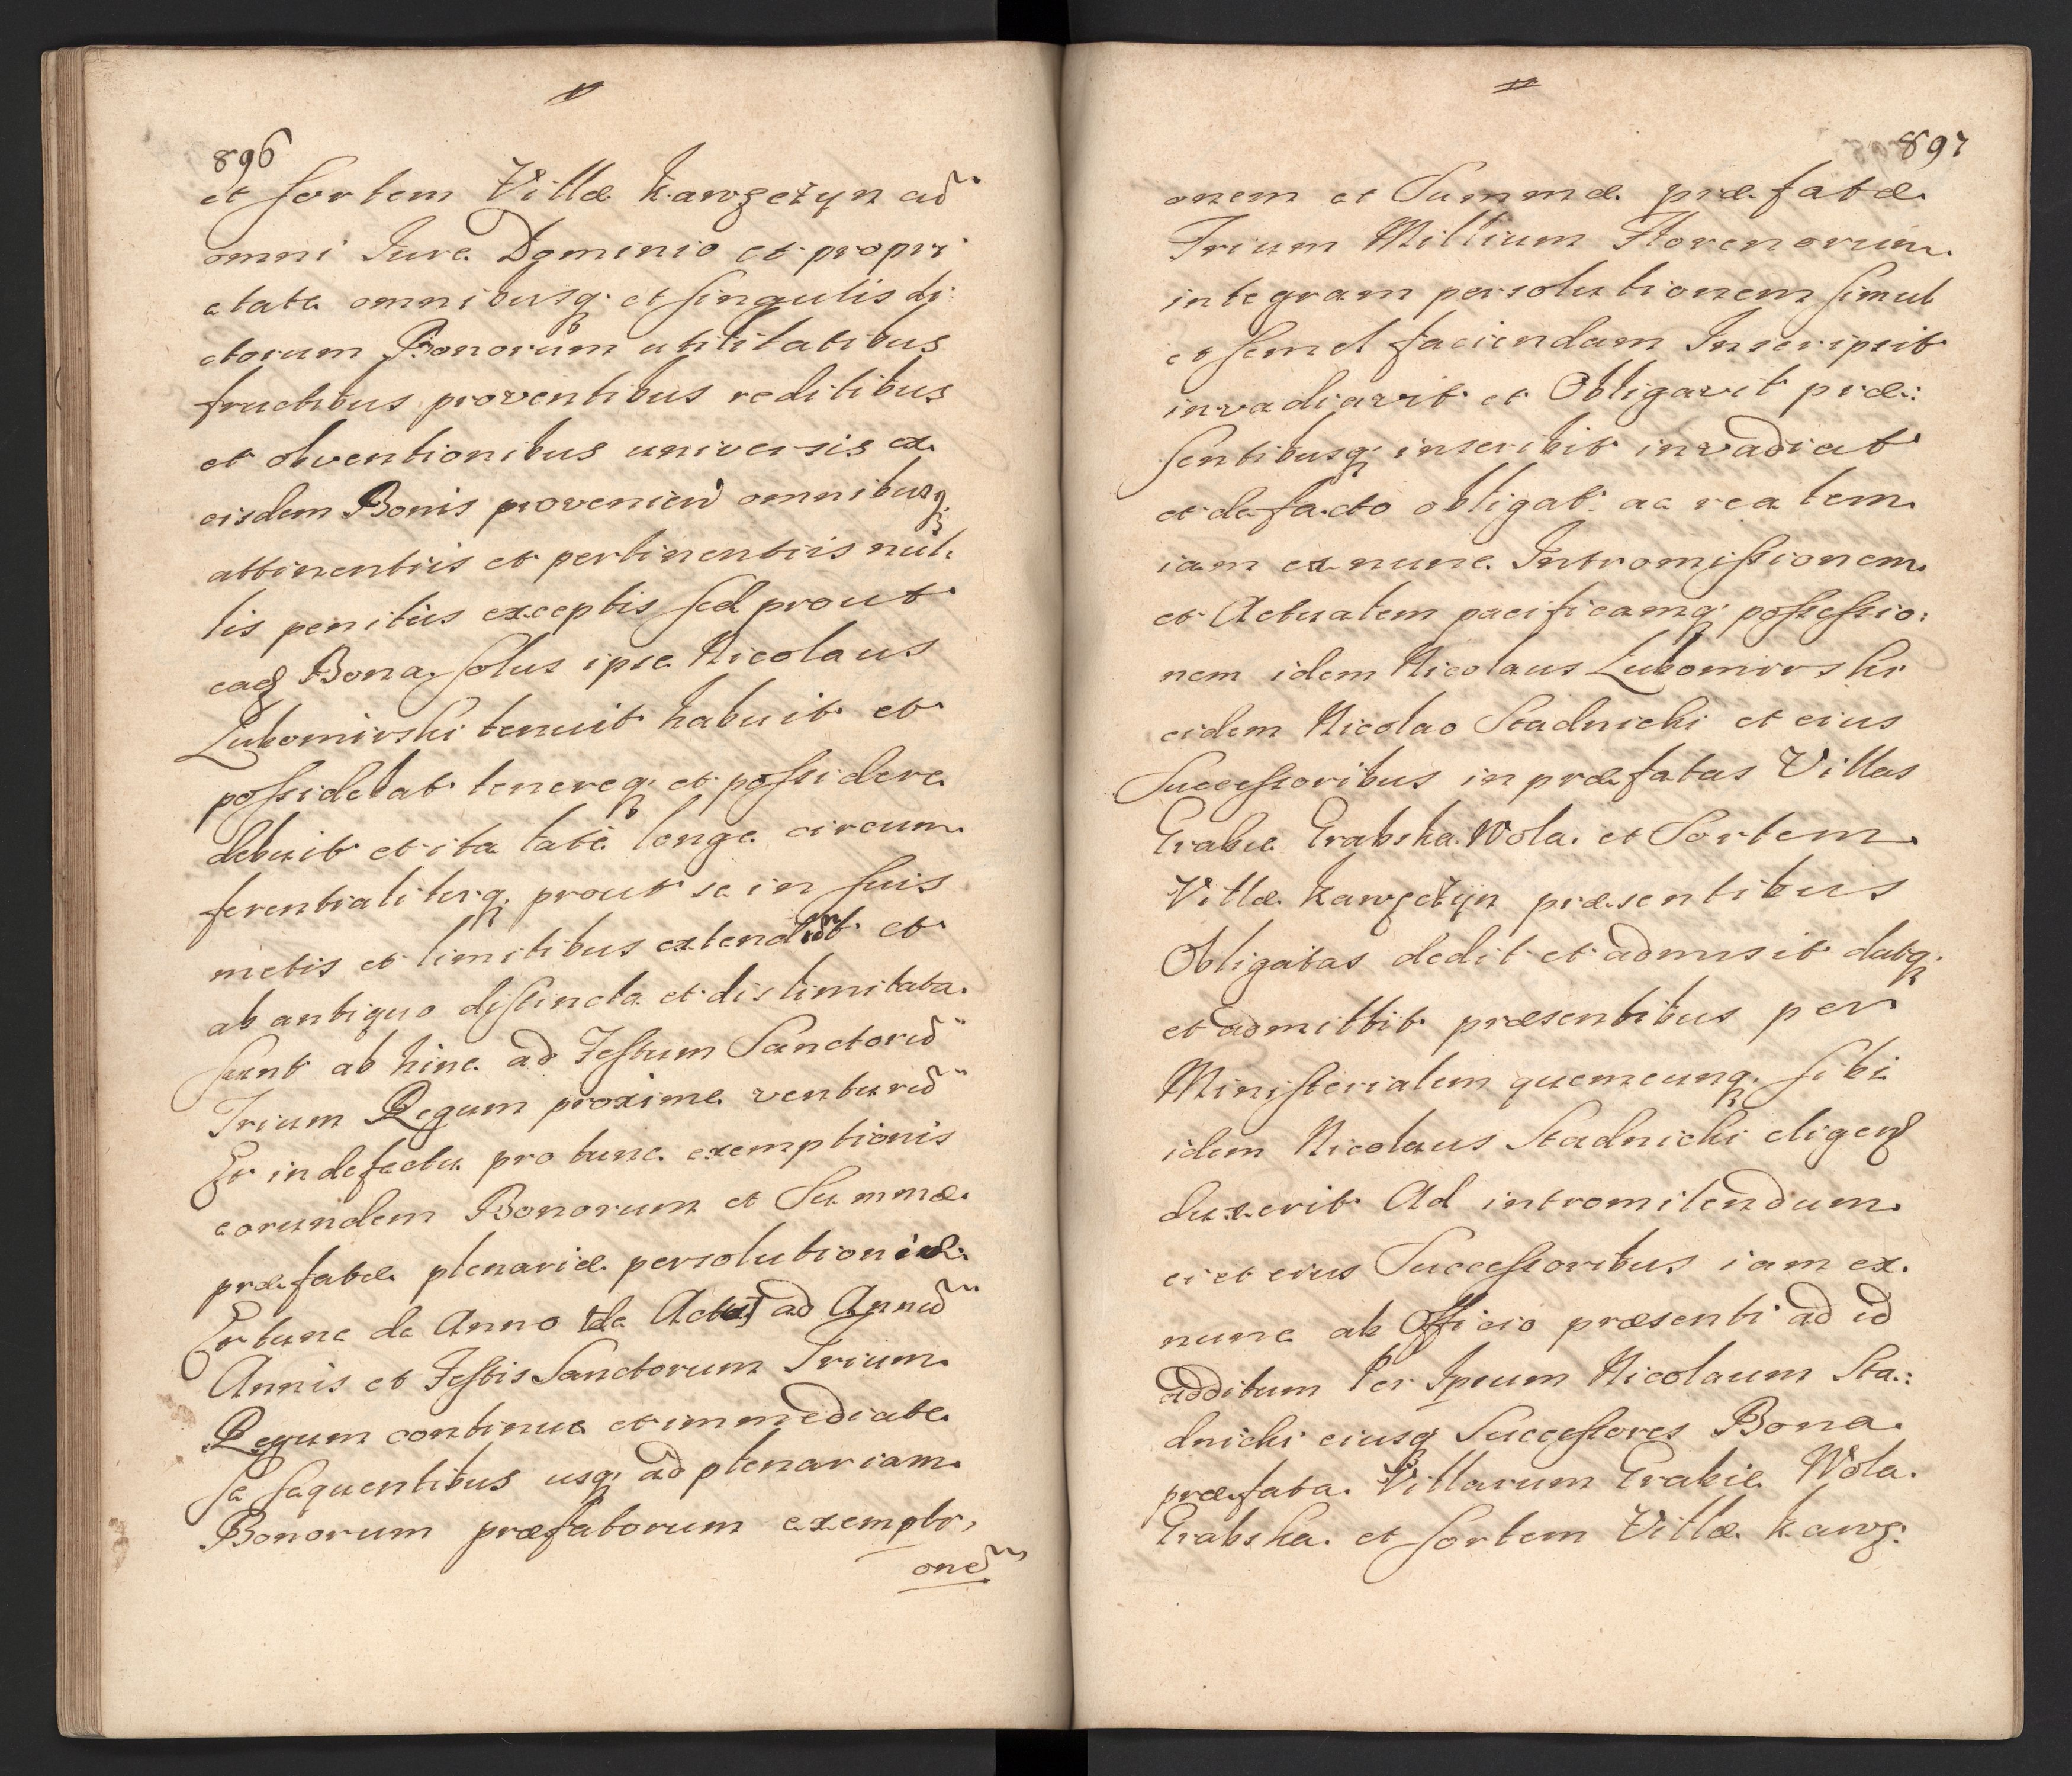 896
et sortem Villæ Kawęczyn cũ
omni Iure Dominio et propri
etate omnibusq; et singulis di:
ctorum Bonorum utilitatibus
fructibus proventibus reditibus
et obventionibus universis ex
eisdem Bonis provenien̄ omnibusq;
attinentiis et pertinentiis nul:
lis penitùs exceptis sed prout
eaq Bona solus ipse Nicolaus
Lubomirski tenuit habuit et
possidebat tenereq; et possidere
debuit et ita latè longe circum
ferentialiterq; prout se in suis
metis et limitibus extendunt et
ab antiquo distincta et dislimitata
sunt ab hinc ad Festum Sanctorũ
Trium Regum proxime venturũ
Et in defectu pro tunc exemptionis
eorundem Bonorum et Summæ
præfatæ plenariæ persolutionis:
Ex tunc de Anno ad Annũ
Annis et Festis Sanctorum Trium
Regum continue et immediate
se sequentibus usq; ad plenariam
Bonorum præfatorum exempti,
onẽ
897
onem et Summæ præfatæ
Trium Millium Florenorum
integram persolutionem simul
et semel faciendam Inscripsit
invadiavit et Obligavit præ:
sentibusq; inscribit invadiat
et de facto obligat ac realem
iam ex nunc Intromissionem
et Actualem pacificamq; possessio:
nem idem Nicolaus Lubomirski
eidem Nicolao Stadnicki et eius
Successoribus in præfatas Villas
Grabie Grabska Wola et Sortem
Villæ Kawęczyn præsentibus
Obligatas dedit et admisit datq;
et admittit præsentibus per
Ministerialem quemcunq; sibi
idem Nicolaus Stadnicki eligen̄
duxerit Ad intromitendum
ei et eius Successoribus iam ex
nunc ab Officio præsenti ad id
additum Per Ipsum Nicolaum Sta:
dnicki eiusq Successores Bona
præfata Villarum Grabie Wola
Grabska et sortem Villæ Kawę: